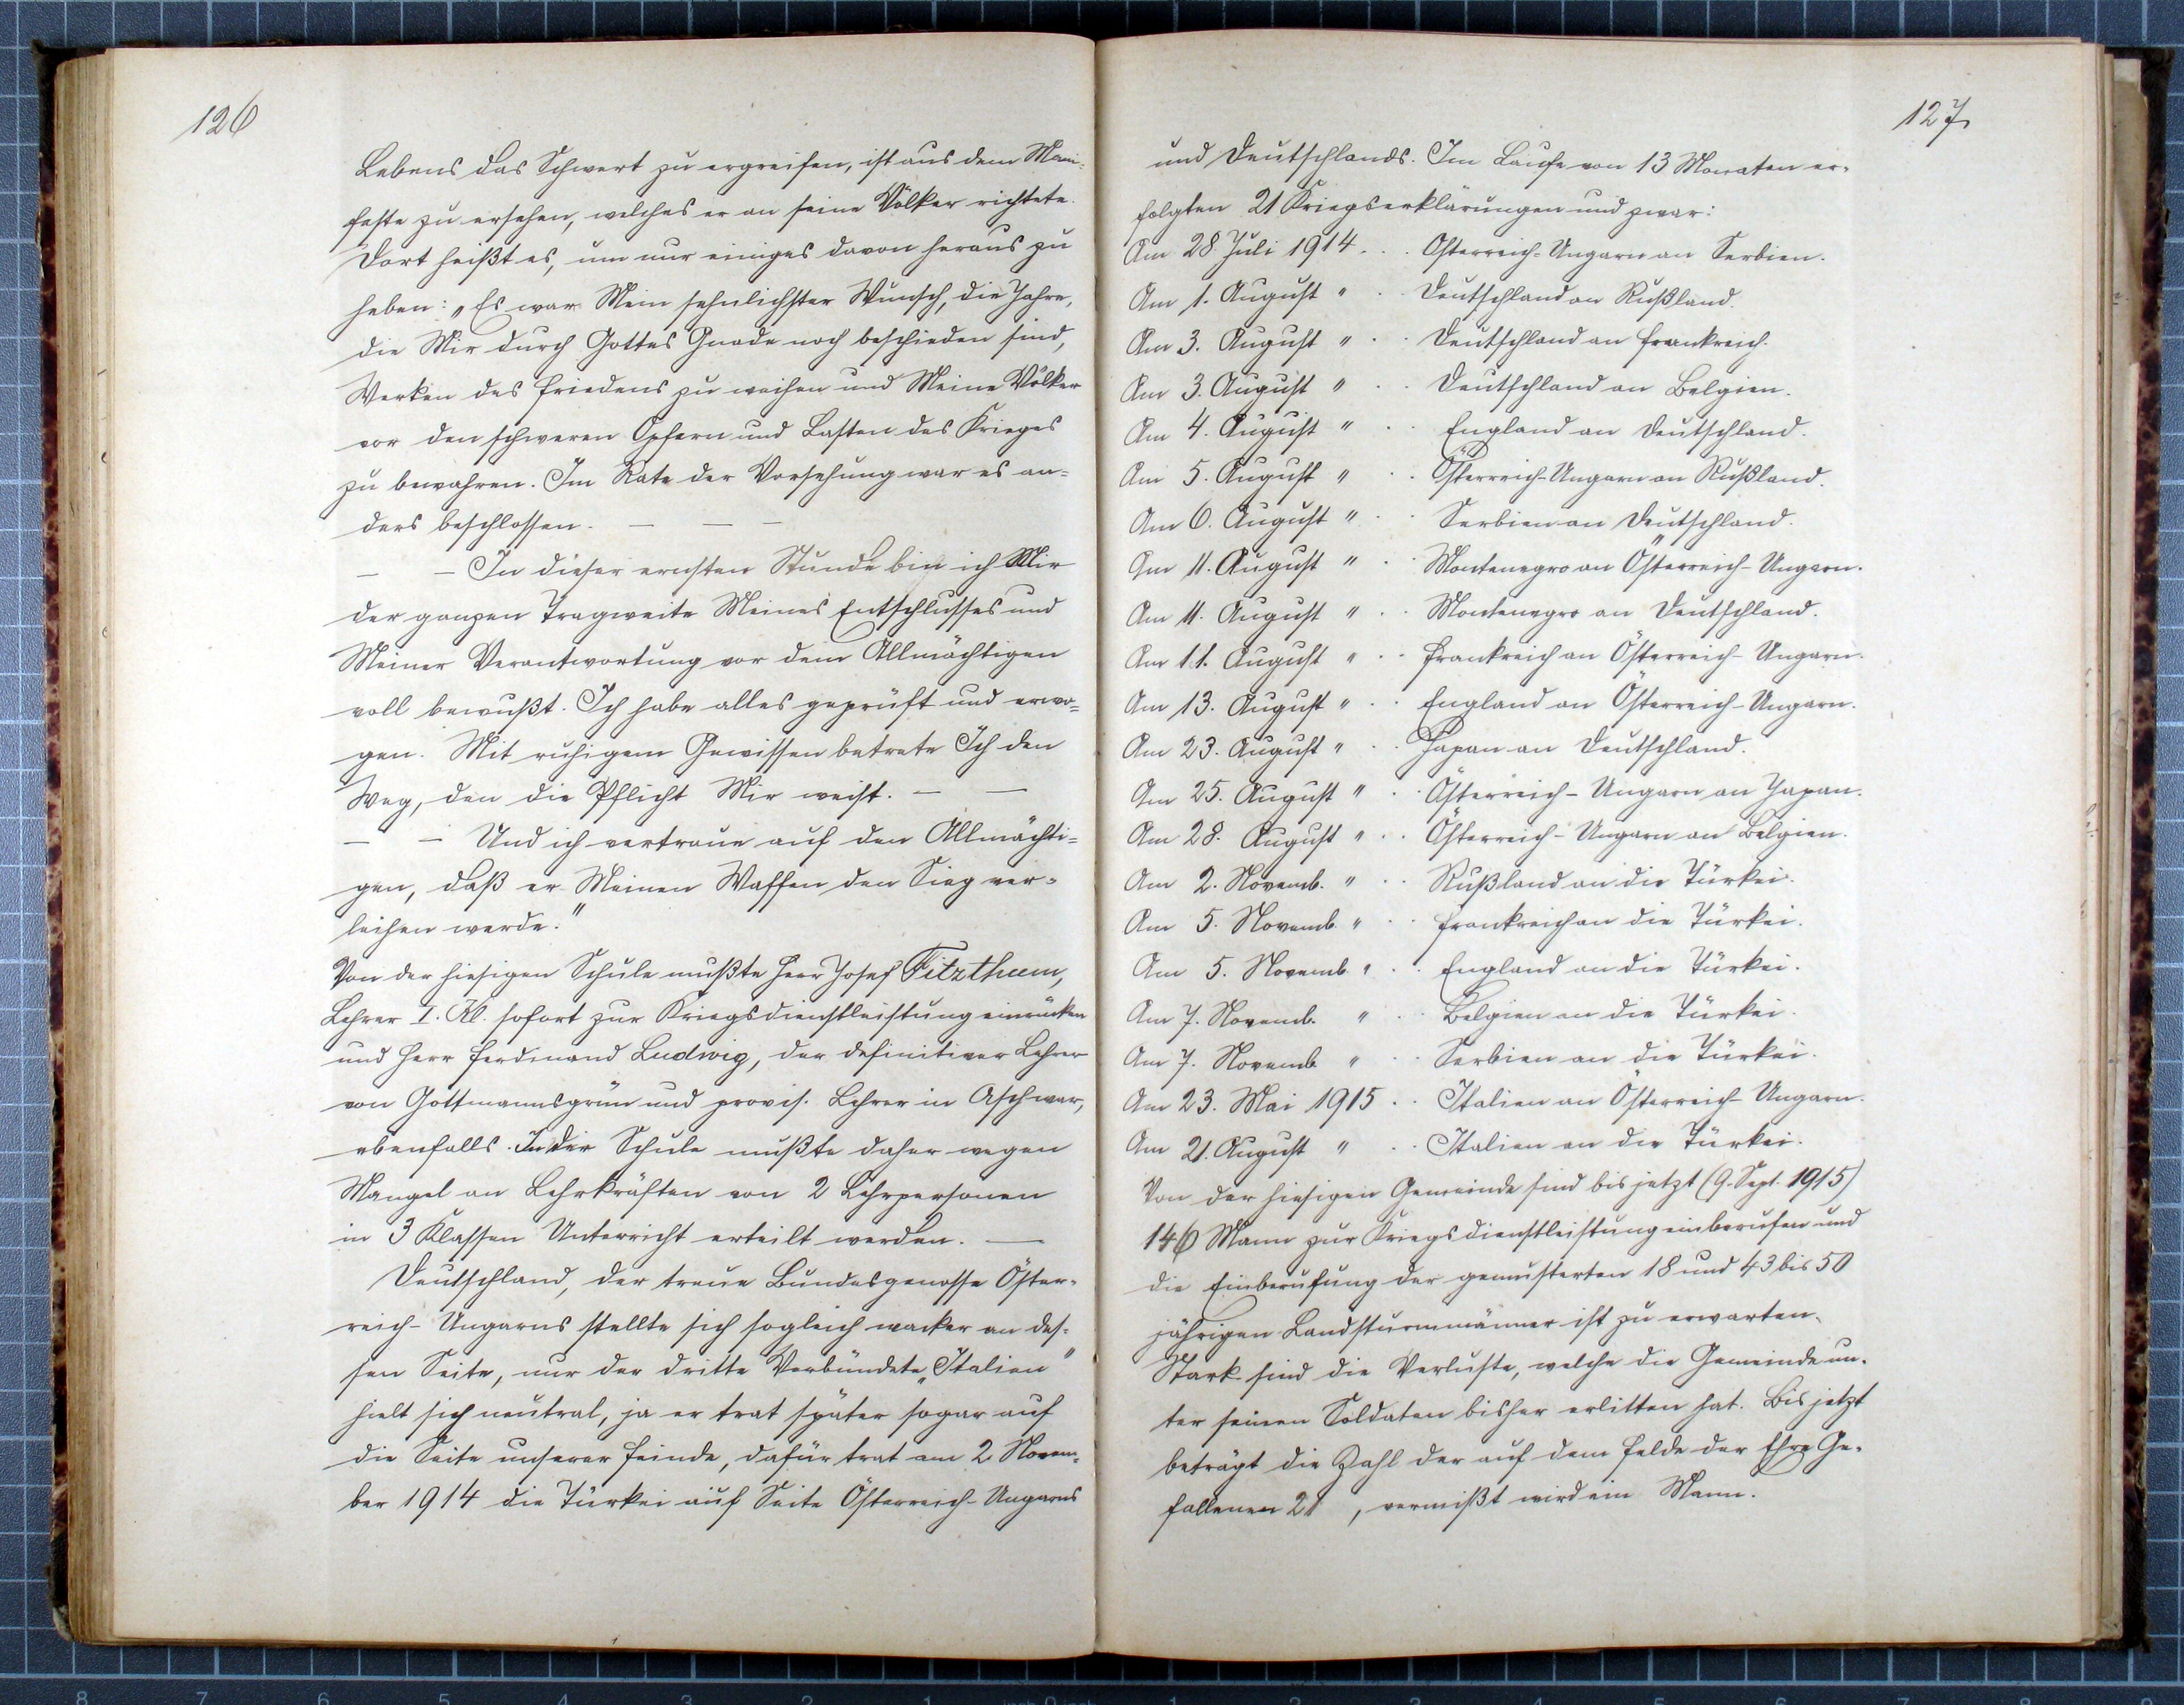 126
Lebens das Schwert zu ergreifen, ist aus dem Mani-
feste zu ersehen, welches er an seine Völker richtete.
Dort heißt es, um nur einiges davon heraus zu
heben: „Es war Mein sehnlichster Wunsch, die Jahre,
die Mir durch Gottes Gnade noch beschieden sind,
Werken des Friedens zu weihen und Meine Völker
vor den schweren Opfern und Lasten des Krieges
zu bewahren. Im Rate der Vorsehung war es an=
ders beschlossen. — — —
— — In dieser ernsten Stunde bin ich Mir
der ganzen Tragweite Meines Entschlusses und
Meiner Verantwortung vor dem Allmächtigen
voll bewußt. Ich habe alles geprüft und erwo=
gen. Mit ruhigem Gewissen betrete Ich den
Weg, den die Pflicht Mir weist. — —
— — Und ich vertraue auf den Allmächti=
gen, daß er Meinen Waffen den Sieg ver=
leihen werde."
Von der hiesigen Schule mußte Herr Josef Fitzthum,
Lehrer I. Kl. sofort zur Kriegsdienstleistung einrücken
und Herr Ferdinand Ludwig, der definitiver Lehrer
von Gottmannsgrün und provis. Lehrer in Asch war,
ebenfalls. In der Schule mußte daher wegen
Mangel an Lehrkräften von 2 Lehrpersonen
in 3 Klassen Unterricht erteilt werden. —
Deutschland, der treue Bundesgenosse Öster=
reich-Ungarns stellte sich sogleich wacker an des=
sen Seite, nur der dritte Verbündete „Italien"
hielt sich neutral, ja er trat später sogar auf
die Seite unserer Feinde, dafür trat am 2. Novem=
ber 1914 die Türkei auf Seite Österreich-Ungarns
127
und Deutschlands. Im Laufe von 13 Monaten er=
folgten 21 Kriegserklärungen und zwar:
Am 28 Juli 1914 . . . Österreich-Ungarn an Serbien.
Am 1. August " . . Deutschland an Rußland.
Am 3. August " . . Deutschland an Frankreich.
Am 3. August " . . Deutschland an Belgien.
Am 4. August " . . England an Deutschland.
Am 5. August " . . Österreich-Ungarn an Rußland.
Am 6. August " . . Serbien an Deutschland.
Am 11. August " . Montenegro an Österreich-Ungarn.
Am 11. August " . . Montenegro an Deutschland.
Am 11. August " . . Frankreich an Österreich-Ungarn.
Am 13. August " . . England an Österreich-Ungarn.
Am 23. August " . . Japan an Deutschland.
Am 25. August " . . Österreich-Ungarn an Japan.
Am 28. August " . . Österreich-Ungarn an Belgien.
Am 2. Novemb. " . . Rußland an die Türkei.
Am 5. Novemb. " . . Frankreich an die Türkei.
Am 5. Novemb. " . . England an die Türkei.
Am 7. Novemb. " . . Belgien an die Türkei.
Am 7. Novemb " . . Serbien an die Türkei.
Am 23. Mai 1915 . . Italien an Österreich-Ungarn.
Am 21. August " . . Italien an die Türkei.
Von der hiesigen Gemeinde sind bis jetzt (9. Sept. 1915)
146 Mann zur Kriegsdienstleistung einberufen und
die Einberufung der gemusterten 18 und 43 bis 50
jährigen Landsturmmänner ist zu erwarten.
Stark sind die Verluste, welche die Gemeinde un=
ter seinen Soldaten bisher erlitten hat. Bis jetzt
beträgt die Zahl der auf dem Felde der Ehre Ge=
fallenen 21 , vermißt wird ein Mann.
8 7 6 5 4 3 2 1 inch 0 inch 1 2 3 4 5 6 7 8 9